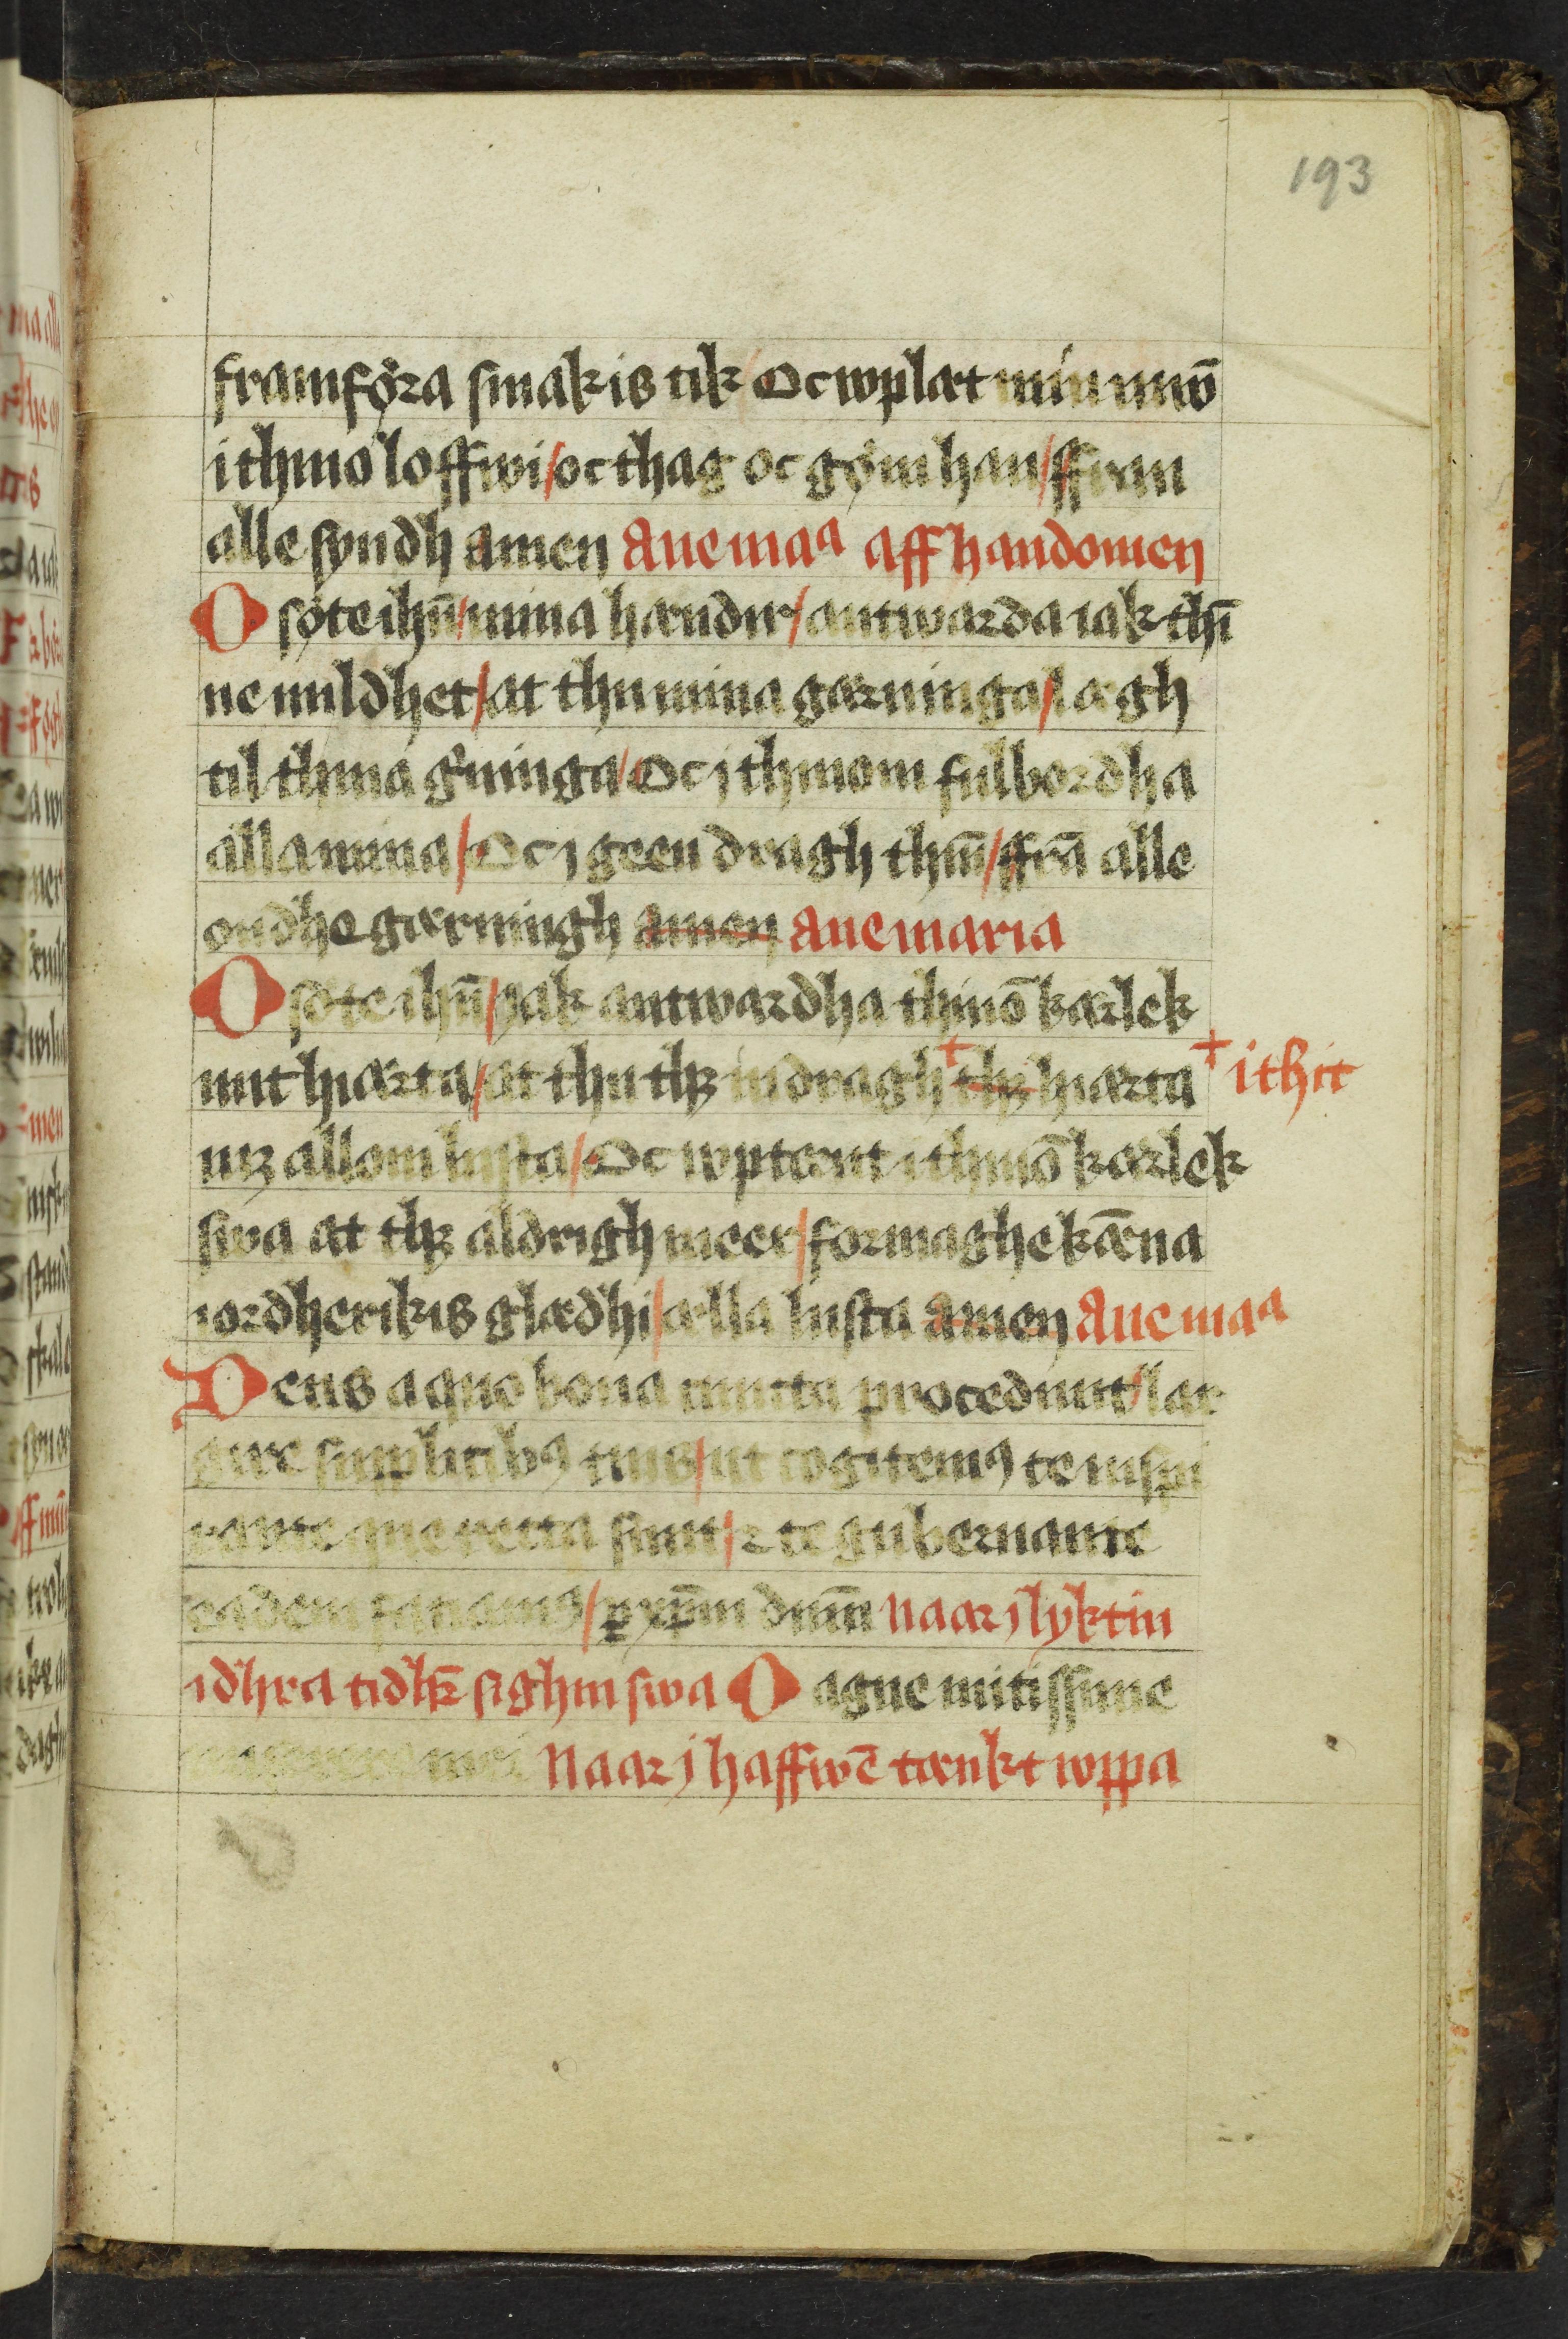 193
framföra smakis tik / Oc wplat min mwn̄
i thino loffwi / oc thag oc göm han / ffran
alle syndh amen Aue maa aff handomen
O söte ihū / mina hændir / antwarda iak thī
ne mildhet / at thu mina gærninga / lægh
til thina g'ninga / Oc j thinom fulbordha
alla mina / Oc j geen dragh thm̄ / ffrā alle
ondhe gærningh amen Aue maria
O söte ihū / iak antwardha thinō kærlek
mit hiærta / at thu thʒ indragh + thʒ hiærta + i thit
mʒ allom lusta / Oc wptænt i thinō kærlek
swa at thʒ aldrigh meer / formaghe kǣna
iordherikis glædhi / ælla lusta amen Aue maa
Deus a quo bona cuncta procedunt / lar
gire supplicibꝰ tuis / ut cogitemꝰ te inspi
rante que recta sunt / ꝛ te gubernante
eadem faciamus / ꝑ xp̄m dnm̄ Naar j lyktin
idhra tidhʒ sighin swa O agne mitissime
miserere mei Naar j haffwē tænkt wppa